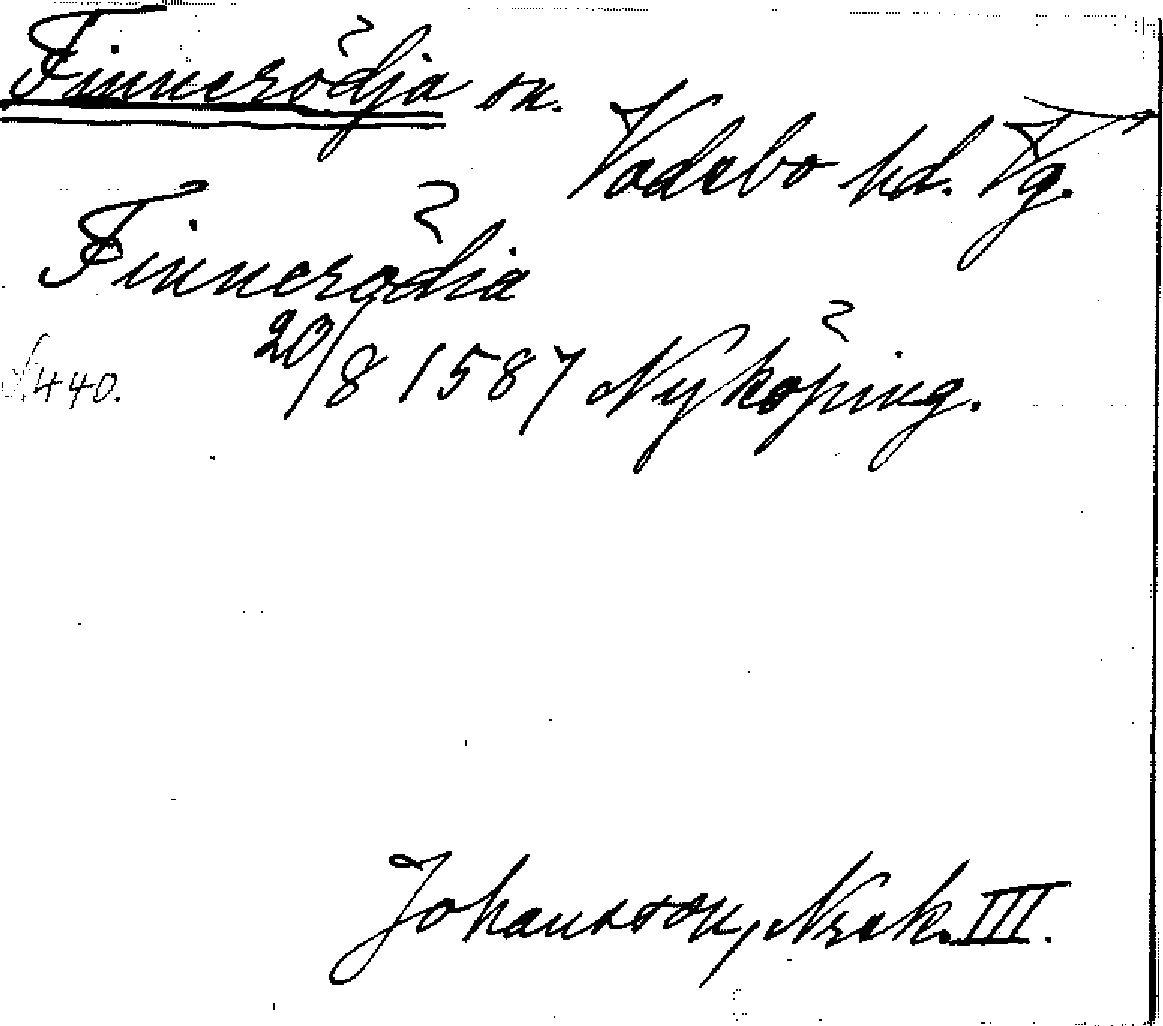 Finnerödja sn.
Vadsbo hd. Vg.
Finnerödia
20/8 1587 Nyköping.
S. 440.
Johansson, Noraskog. III.